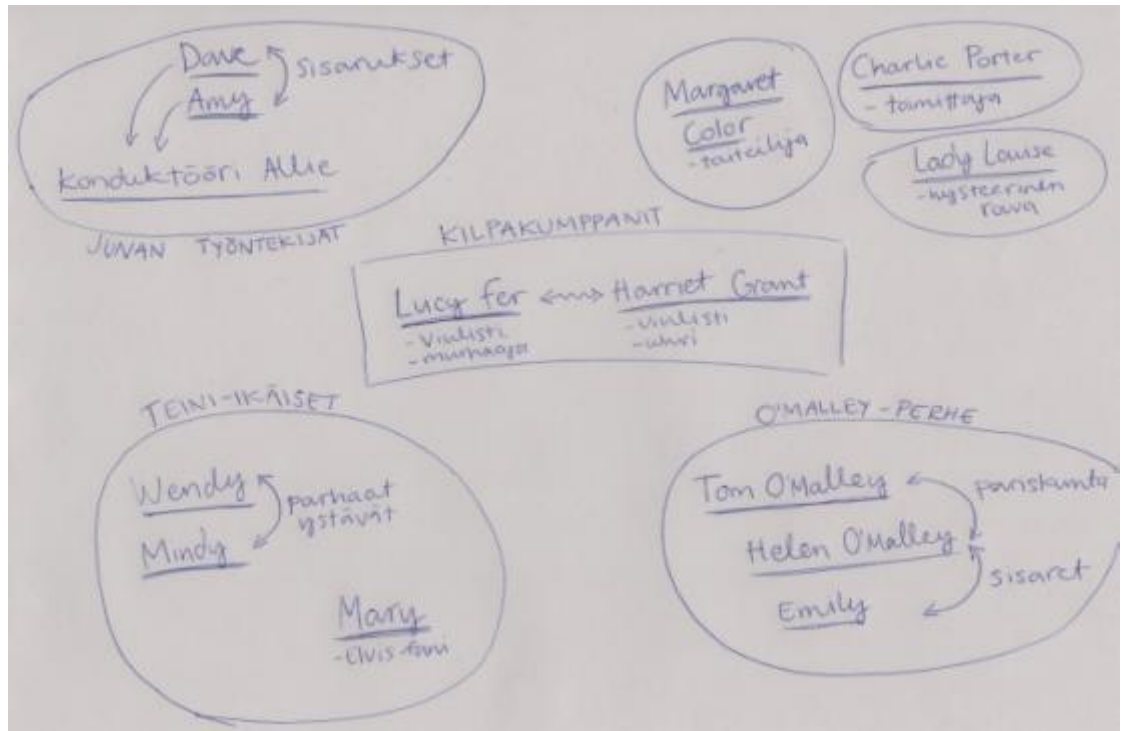 Dave
sisarukset
Amy
Konduktööri Allie
JUNAN TYÖNTEKIJÄT
Margaret
Color
-taiteilija
Charlie Porter
- toimittaja
Lady Louise
-hysteerinen
rouva
KILPAKUMPPANIT
Lucy Fer
-viulisti
-murhaaja
Harriet Grant
-viulisti
-uhri
TEINI-IKÄISET
Wendy
parhaat
ystävät
Mindy
Mary
-Elvis-fani
O'MALLEY-PERHE
Tom O'Malley
pariskunta
Helen O'Malley
sisaret
Emily